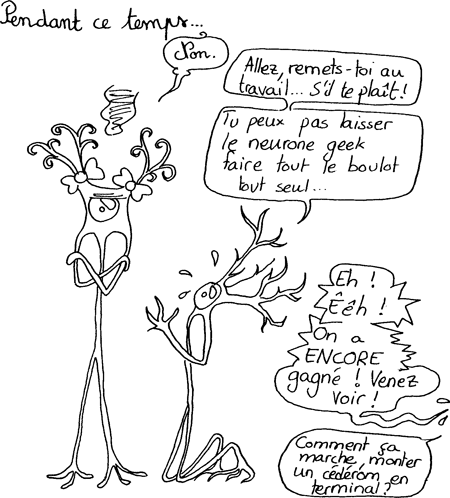 Pendant ce temps...
Non.
Allez, remets-toi au
travail... S'il te plaît!
Tu peux pas laisser
le neurone geek
faire tout le boulot
tout seul...
Eh !
Êêh !
On a
ENCORE
gagné ! Venez
voir !
Comment ça
marche, monter
un cédérom en
terminal?